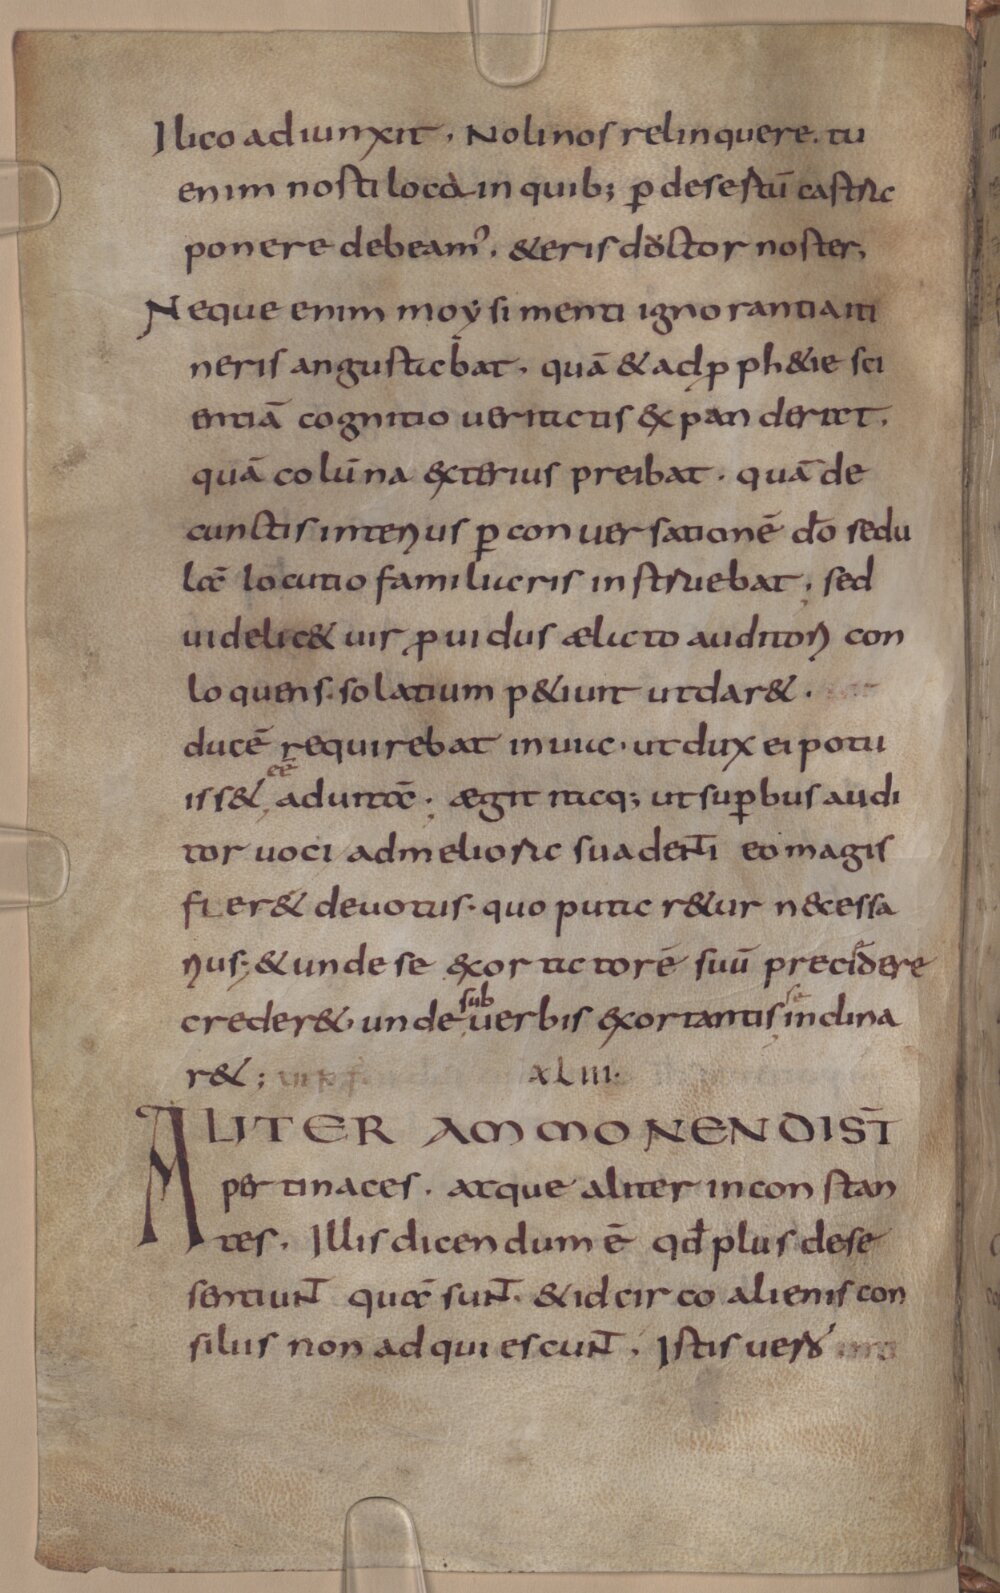 Ilico adiunxit. Noli nos relinquere. tu
enim nosti loca in quib; ꝑ desertū castra
ponere debeamꝰ. & eris doctor noster;
Neque enim moẏsi menti ignorantia iti
neris angustiabat. quā & ad ꝓph&ie sci
entiā cognitio ueritatis expanderat.
quā colūna exterius preibat. quā de
cunctis interius ꝑ conuersationē dō sedu
lā locutio familiaris instruebat. sed
uidelic& uir ꝓuidus ælato auditori con
loquens. solatium p&iuit ut dar&.
ducē requirebat in uia. ut dux ei potu
iss& eē ad uitā. ægit itaq; ut suꝑbus audi
tor uoci ad meliora suadenti eo magis
fier& deuotus. quo putar&ur necessa
rius; & unde se exortatorē suū precidere
creder&. unde sub uerbis exortantis se inclina
r&;
XLIII.
ALITER AMMONENDI ST̄
pertinaces. atque aliter inconstan
tes. Illis dicendum ē qđ plus de se
sentiunt quā sunt. & idcirco alienis con
siliis non adquiescunt. Istis uero